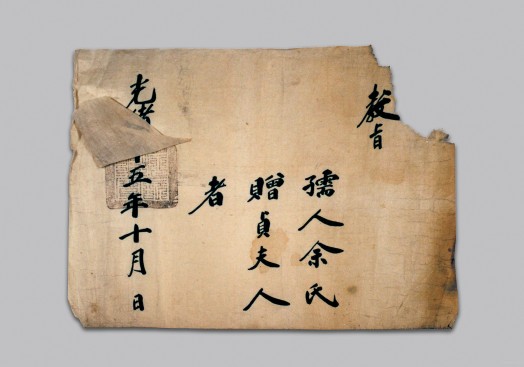 敎旨
孺人余氏
贈貞夫人
者
光緖十五年十月 日